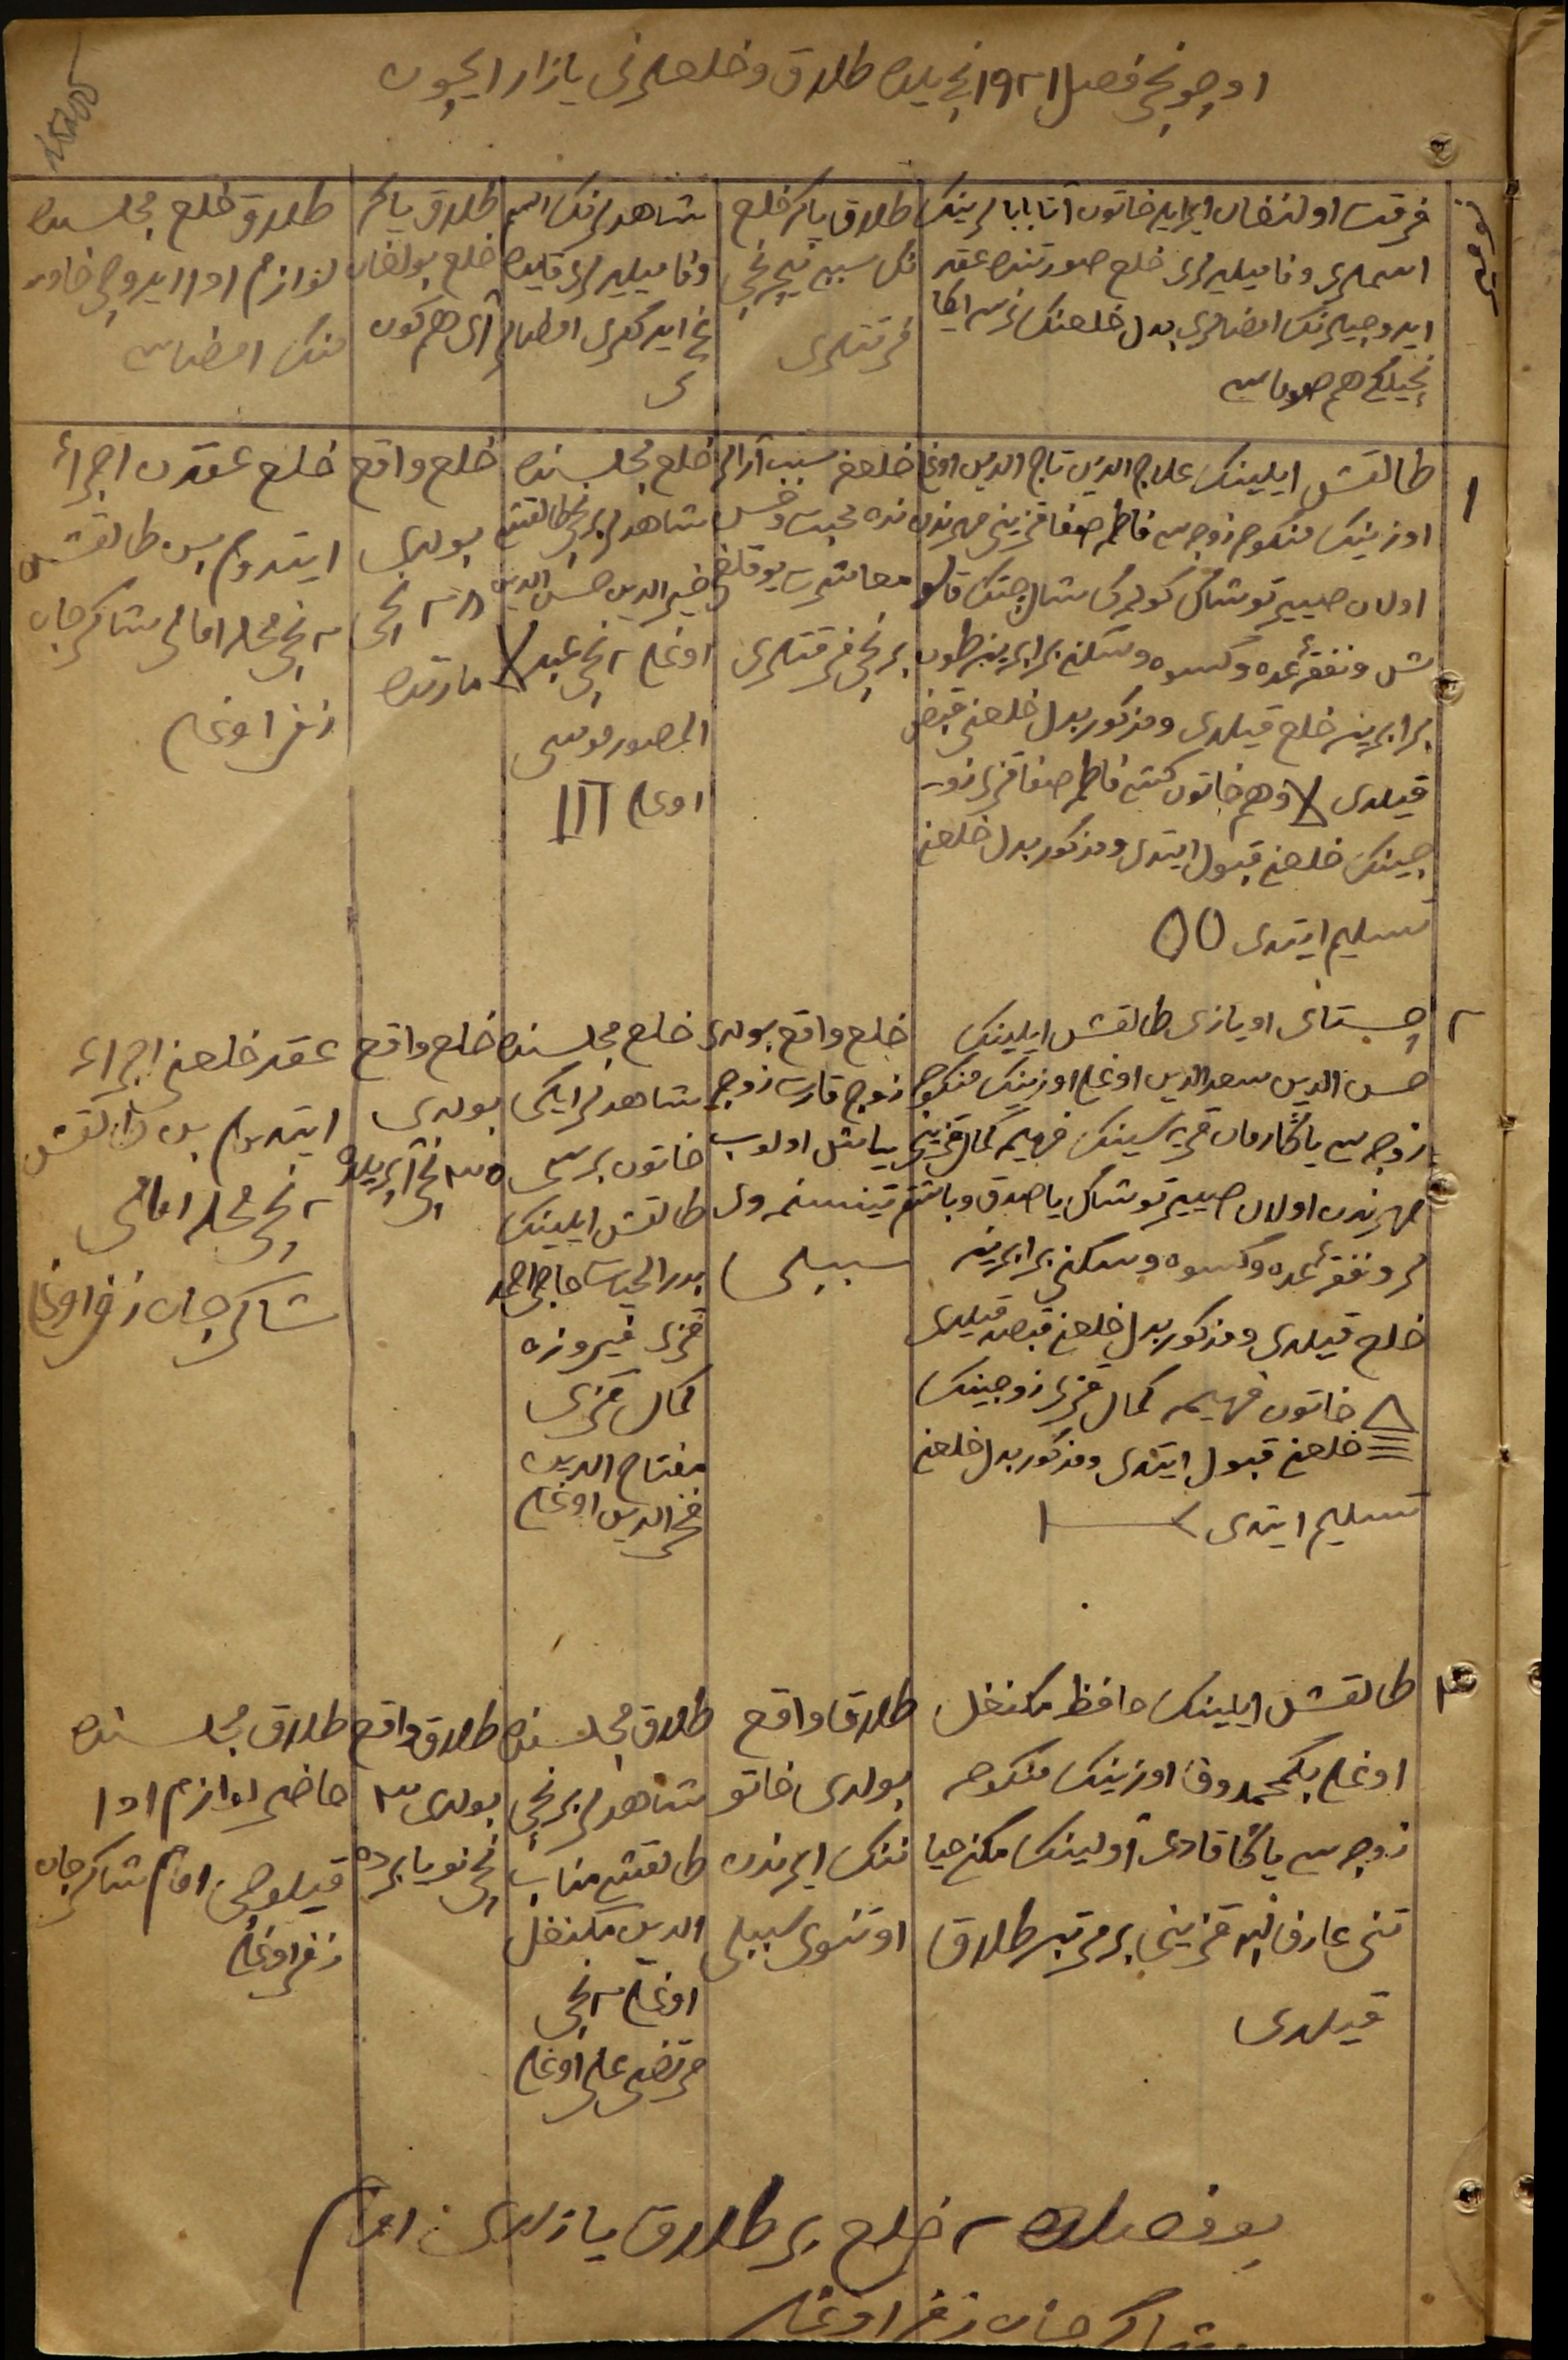 اوچونچی فصل ۱۹۲۱ نچی یلده طلاق و خلعلرنی یازار ایچون
نومر
فرقت اولنغان ایر ایله خاتون آتا بابالرینک
اسملری و فامیلیه لری خلع صورتنده عقد
ایدوچیلرنک امضالری بدل خلعنک نرسه ایکا
نچیلیگی هم صوماسی
طلاق یاکه خلع
نک سببی نیچه نچی
فرقتلری
شاهدلرنک اسم
و فامیلیه لری قایده
غی ایدکلری امضالا
ری
طلاق یاکه
خلع بولغان
آی هم کون
طلاق خلع مجلسنده
لوازم ادا ایدوچی
ننک امضاسی
۱
طالقش ایلینک علاج الدین تاج الدین اوغلی
اوزینک منکوحه زوجه سی فاطمه صفا قزینی مهرندن
اولان صییر توشاک کولمک شال
ش و نفقهٔ عده و کسوه و سکنی برابرینه
برابرینه خلع قیلدی و مذکور بدل خلعنی قبض
قیلدی X و هم خاتون فاطمه صفا قزی زو
جینک خلعنی قبول ایتدی و مذکور بدل خلعنی
تسلیم ایتدی OO
خلعغه سبب آرالر
نده محبت و حسن
معاشرت یوقلغی
برنچی فرقتلری
خلع مجلسنده
شاهدلر برنچی طالقش
خیر الدین حسن الدین
اوغلی ۲ نچی عبد X
المصور موسی
اوغلی III
خلع واقع
بولدی
۲۸ نچی
مارتده
خلع عقدن اجراء
ایتدوم بن طالقش
۲ نچی محله امامی شاکرجان
زفر اوغلی
۲
چستای اویازی طالقش ایلینک
حسن الدین سعد الدین اوغلی اوزینک منکوحه
زوجه سی یاڭا رومان قریه سینک فهیمه کمال قزینی
مهرندن اولان صییر توشاک یاصدق و باشقه
لر و نفقهٔ عده و کسوه و سکنی برابرینه
خلع قیلدی و مذکور بدل خلعنی قبض قیلدی
خاتون فهیمه کمال قزی زوجینک
خلعنی قبول ایتدی و مذکور بدل خلعنی
تسلیم ایتدی
خلع واقع بولدی
زوج قارت زوجه
یاش اولوب
سببلی
خلع مجلسنده
شاهدلر ایکی
خاتون برسی
طالقش ایلینک
بدر الحیات حاجی احمد
قزی فیروزه
کمال قزی
مفتاح الدین
فخر الدین اوغلی
خلع واقع
بولدی
نچی آپریلده
عقد خلعنی اجراء
ایتدوم بن طالقش
۲ نچی محله امامی
شاکرجان زفر اوغلی
۳
طالقش ایلینک حافظ
اوغلی بکمحمدوف اوزینک منکوحه
زوجه سی یاڭا قادی آولینک
عارف الله قزینی بر مرتبه طلاق
قیلدی
طلاق واقع
بولدی خاتو
ننک ایرندن
اوتنوی سببلی
طلاق مجلسنده
شاهدلر برنچی
طالقش مناب
الدین
اوغلی ۲ نچی
مرتضی علی اوغلی
طلاق واقع
بولدی ۳
نچی نویابرده
طلاق مجلسنده
حاضر لوازم ادا
قیلوچی امام شاکرجان
زفر اوغلی
بو فصلده ۲ خلع بر طلاق یازلدی امام
شاکرجان زفر اوغلی